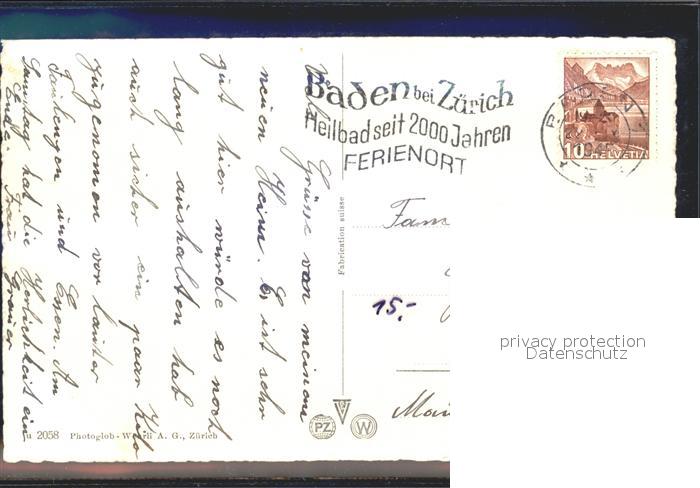 Viele Grüsse von meinem
neuen Heim. Es ist sehr
gut hier würde es noch
lang aushalten hat
auch sicher ein paar Kilo
zugenomen vor lauter
Faulenzen und Essen. Am
Samstag hat die Herlichkeit ein
Ende. Frau
Baden bei Zürich
Heilbad seit 2000 Jahren
FERIENORT
10 HELVETIA
BADEN
Fabrication suisse
Fam
15.-
privacy protection
Datenschutz
PZ
W
u 2058 Photoglob-Wehrli A. G., Zürich